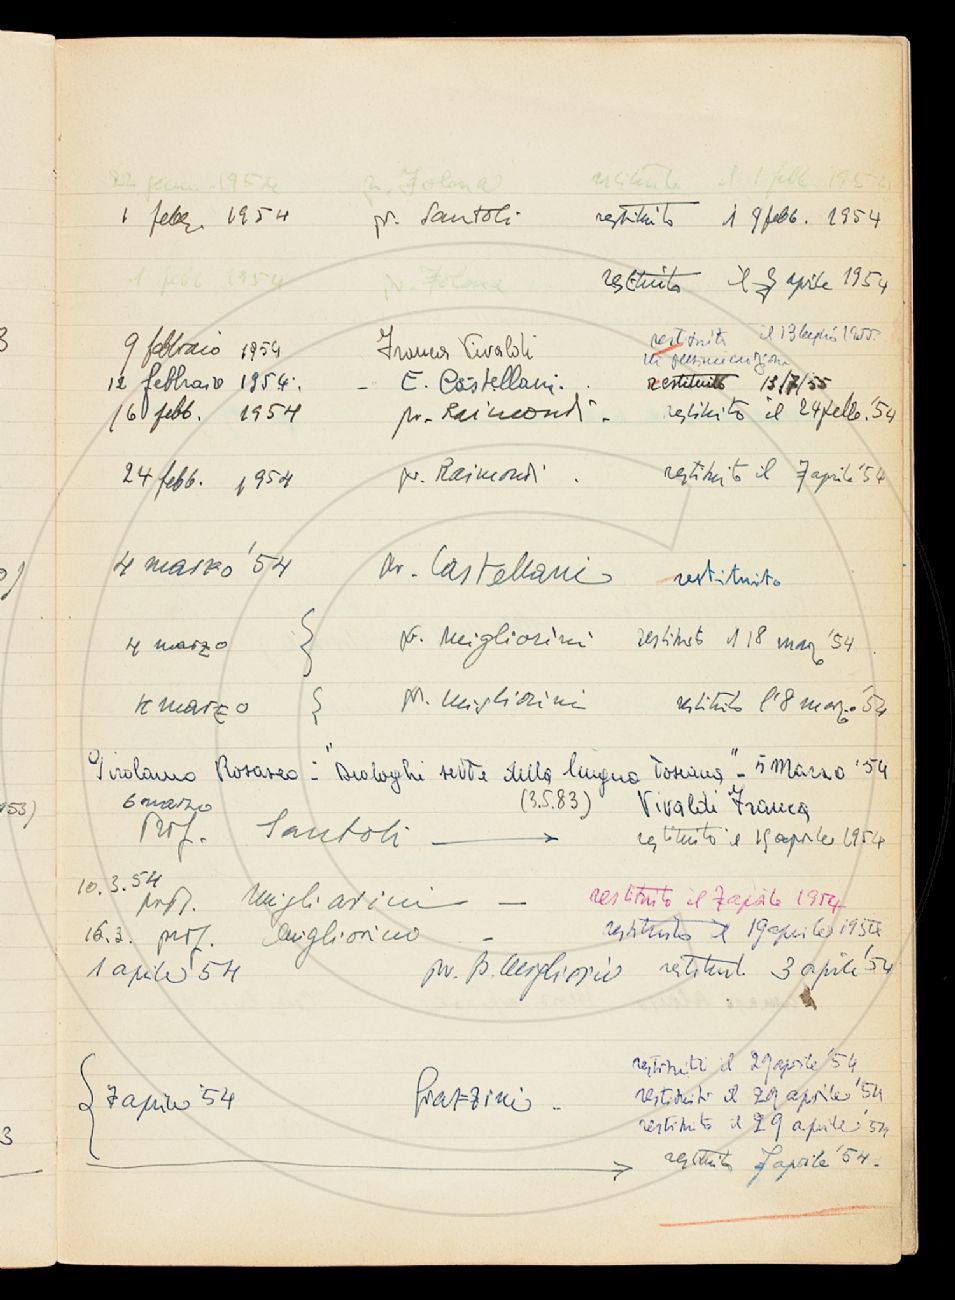 22 genn. 1954 pr. Folena restituito il 1 febb 1954
1 febbr. 1954 pr. Santoli restituito il 9 febb. 1954
1 febb 1954 pr. Folena restituito il aprile 1954
9 febbraio 1954 Franca Vivaldi restituito il 13 luglio 1955
12 febbraio 1954. - E. Castellani. restituito 13/7/55
16 febb. 1954 pr. Raimondi. restituito il 24 febb. '54
24 febb. 1954 pr. Raimondi. restituito il 7 aprile '54
4 marzo '54 pr. Castellani restituito
4 marzo { pr. Migliorini restituito il 18 marzo '54
marzo { pr. Migliorini restituito l'8 marzo '54
Girolamo Rosasco - "Dialoghi sette della lingua Toscana" - 5 Marzo '54
6 marzo (3.5.83) Vivaldi Franca
Prof. Santoli → restituito il aprile 1954
10.3.54
prof. Migliorini - restituito il 7 aprile 1954
16.3. prof. Migliorini - restituito il 19 aprile 1954
1 aprile '54 pr. B. Migliorini restituito 3 aprile '54
restituiti il 29 aprile '54
{ 7 aprile '54 Grazzini - restituiti il 29 aprile '54
restituito il 29 aprile '54
→ restituito 7 aprile '54.
3
53)
3